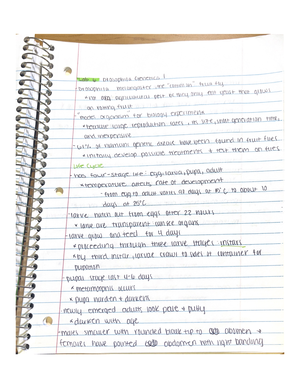 Drosophila Genetics 1
Drosophila melanogaster the "common" fruit fly
*not agricultural pest b/c they only eat yeast that grows
on rotting fruit
model organism for biology experiments
*because large reproduction rates, short generation time,
and inexpensive
of human genetic disease have been found in fruit flies
*initially develop possible treatments & test them on flies
Life Cycle
has four-stage life: egg, larva, pupa, adult
*temperature affects rate of development
from egg to adult varies days at °C to about 10
days at 25°C
larvae hatch out from eggs after 22 hours
*larvae are transparent
larvae grow and feed for 4 days
*proceeding through three larval stages instars
*by third instar, larvae crawl to sides of container for
pupation
pupal stage last 4-6 days
*metamorphosis occurs
*pupa harden & darkens
newly emerged adults look pale & puffy
*darken with age
males smaller with rounded black tip to abdomen &
females have pointed abdomen with light banding